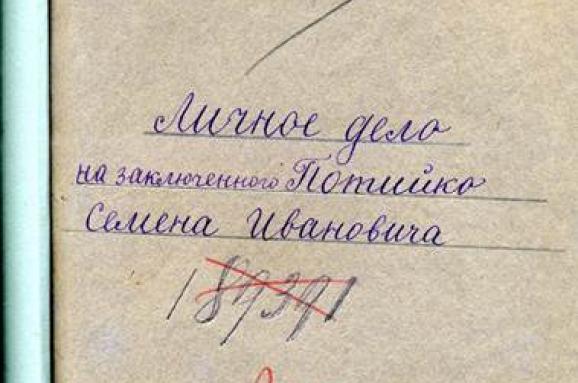 Личное дело
на заключенного Потийко
Семена Ивановича
189391